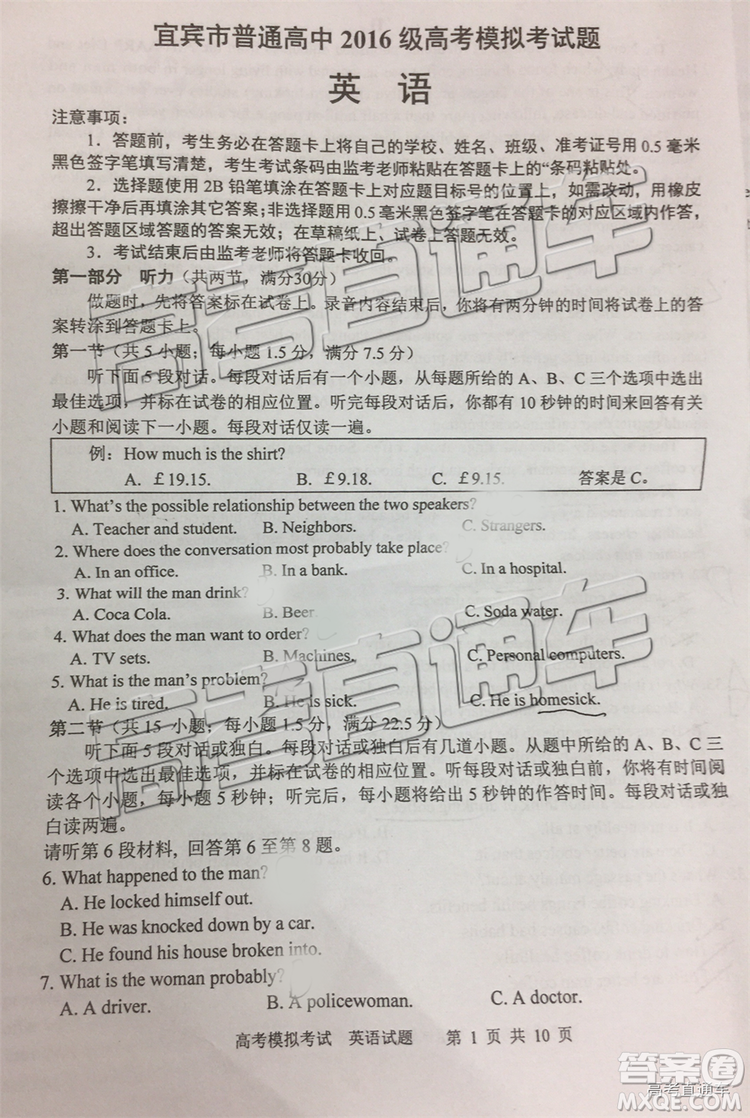 宜宾市普通高中 2016 级高考模拟考试题
英 语
注意事项：
1．答题前，考生务必在答题卡上将自己的学校、姓名、班级、准考证号用 0.5 毫米
黑色签字笔填写清楚，考生考试条码由监考老师粘贴在答题卡上的“条码粘贴处。
2．选择题使用 2B 铅笔填涂在答题卡上对应题目标号的位置上，如需改动，用橡皮
擦擦干净后再填涂其它答案；非选择题用 0.5 毫米黑色签字笔在答题卡的对应区域内作答，
超出答题区域答题的答案无效；在草稿纸上、试卷上答题无效。
3．考试结束后由监考老师将答题卡收回。
第一部分 听力（共两节，满分30分）
做题时，先将答案标在试卷上。录音内容结束后，你将有两分钟的时间将试卷上的答
案转涂到答题卡上。
第一节（共 5 小题；每小题 1.5 分，满分 7.5 分）
听下面 5 段对话。每段对话后有一个小题，从每题所给的 A、B、C 三个选项中选出
最佳选项，并标在试卷的相应位置。听完每段对话后，你都有 10 秒钟的时间来回答有关
小题和阅读下一小题。每段对话仅读一遍。
例：How much is the shirt?
A. ￡19.15. B. ￡9.18. C. ￡9.15. 答案是 C。
1. What's the possible relationship between the two speakers?
A. Teacher and student. B. Neighbors. C. Strangers.
2. Where does the conversation most probably take place?
A. In an office. B. In a bank. C. In a hospital.
3. What will the man drink?
A. Coca Cola. B. Beer C. Soda water.
4. What does the man want to order?
A. TV sets. B. Machines. C. Personal computers.
5. What is the man's problem?
A. He is tired. B. He is sick. C. He is homesick.
第二节（共 15 小题；每小题 1.5 分，满分 22.5 分）
听下面 5 段对话或独白。每段对话或独白后有几道小题。从题中所给的 A、B、C 三
个选项中选出最佳选项，并标在试卷的相应位置。听每段对话或独白前，你将有时间阅
读各个小题，每小题 5 秒钟；听完后，各小题将给出 5 秒钟的作答时间。每段对话或独
白读两遍。
请听第 6 段材料，回答第 6 至第 8 题。
6. What happened to the man?
A. He locked himself out.
B. He was knocked down by a car.
C. He found his house broken into.
7. What is the woman probably?
A. A driver. B. A policewoman. C. A doctor.
高考模拟考试 英语试题 第 1 页 共 10 页
高考直通车
高考直通车
答案圈
高考直通车
MXQE.COM